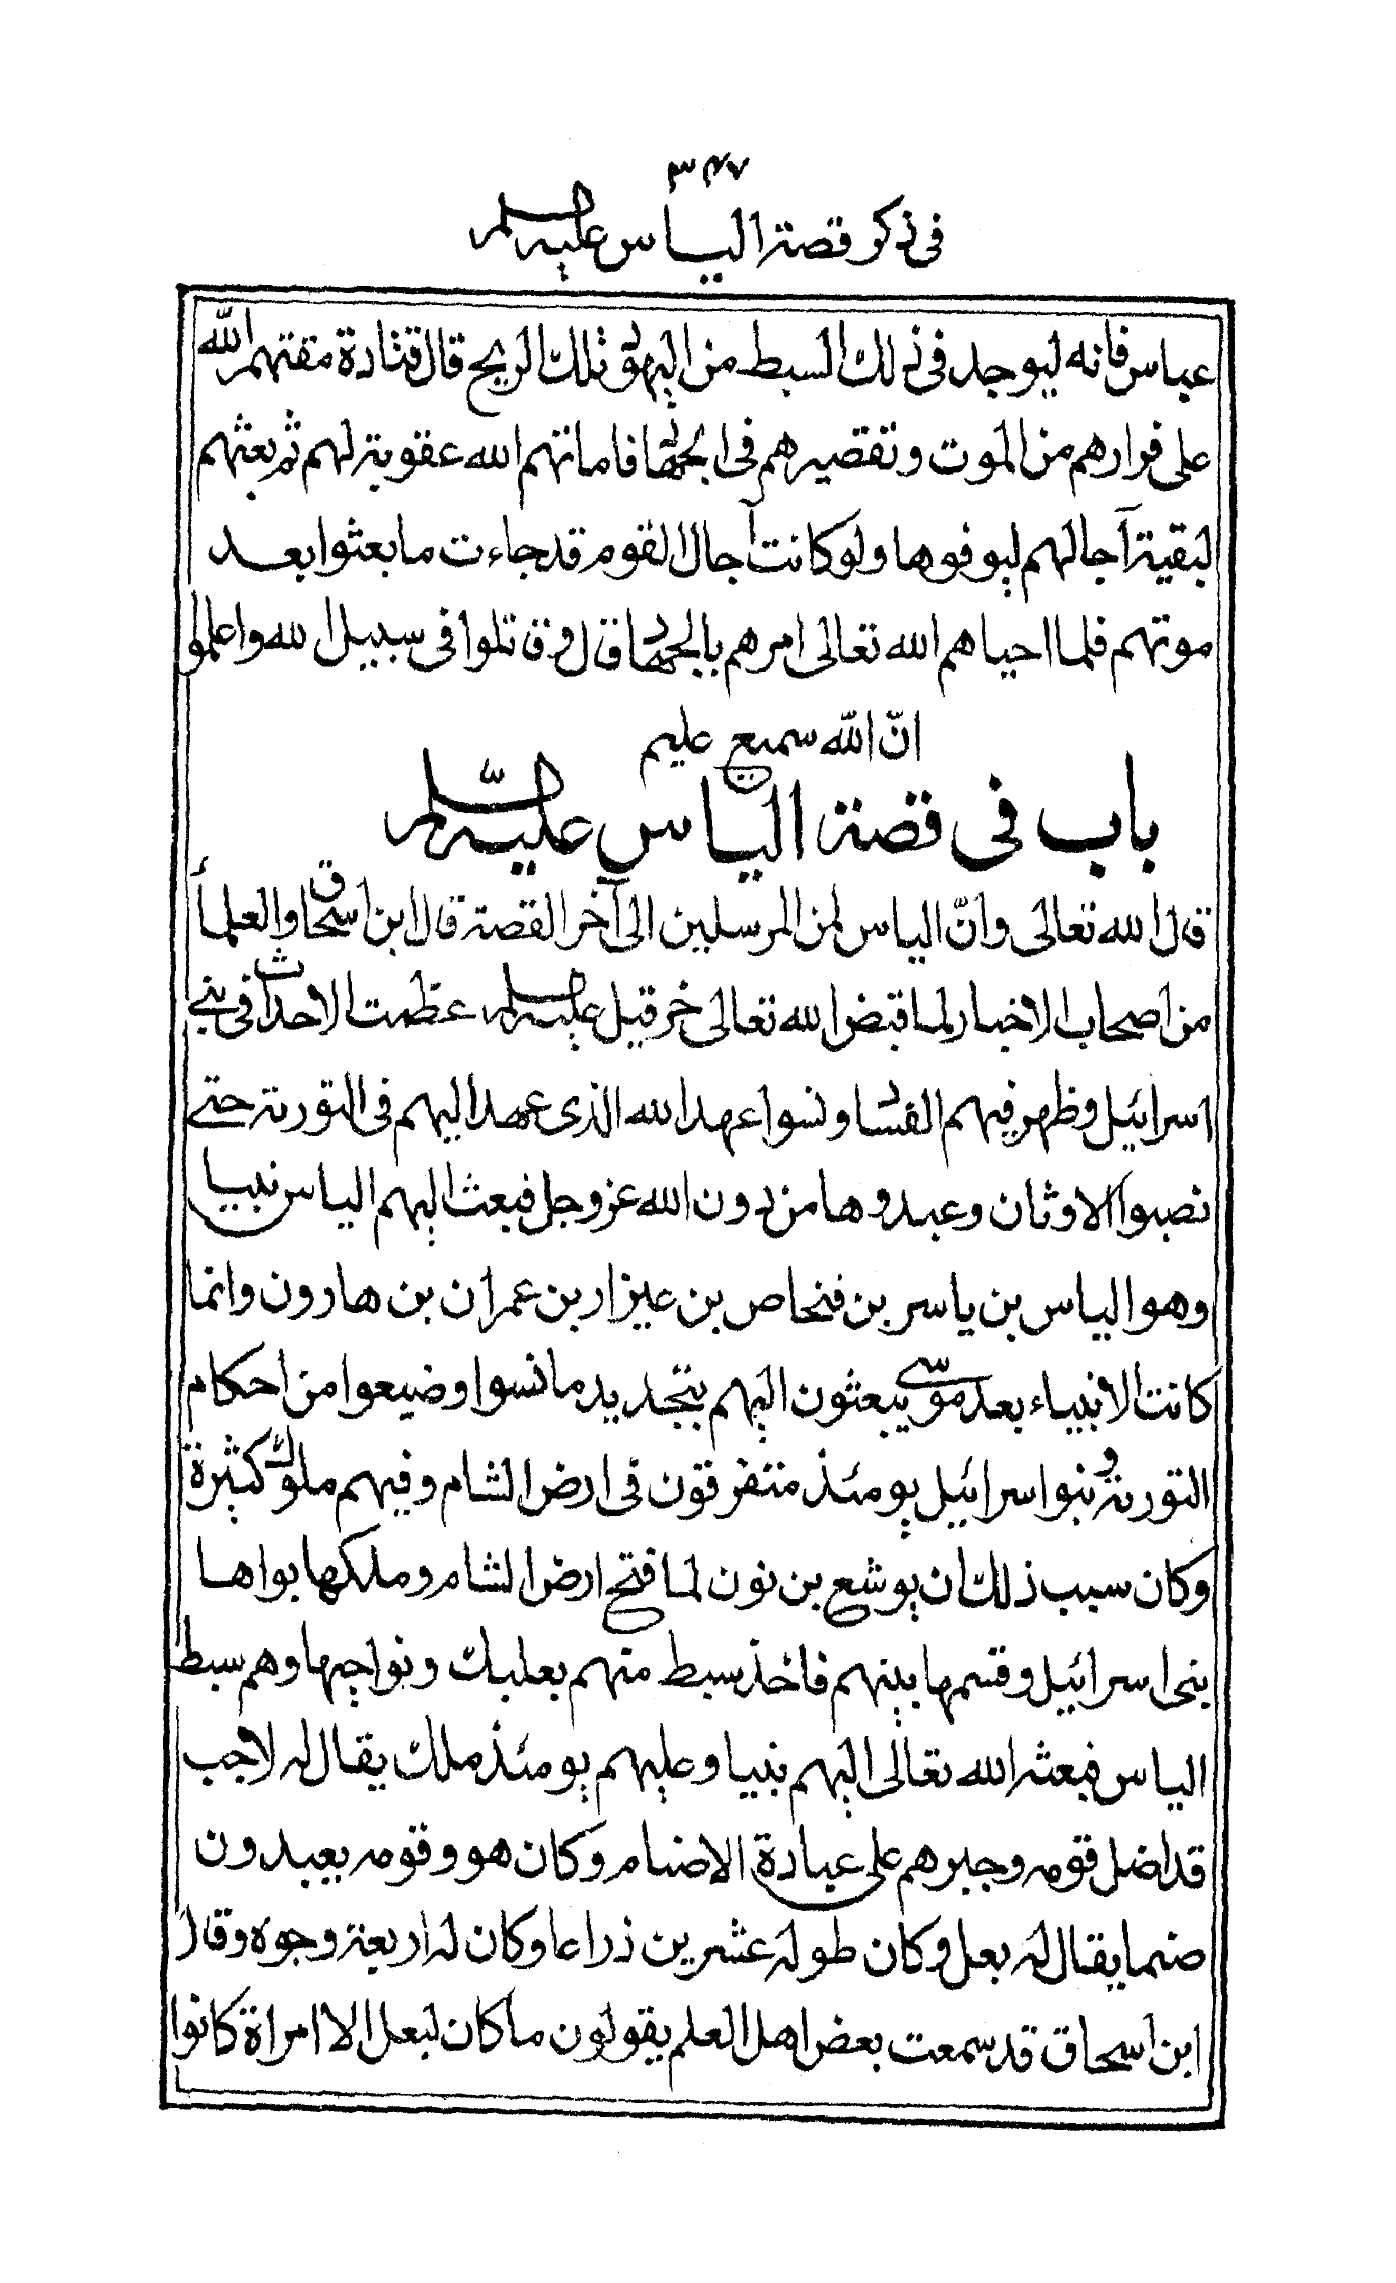 ٣٤٧
فى ذكر قصة الياس عليه السلم
عباس فانه ليوجد فى ذلك السبط من اليهود تلك الريح قال قتادة مقتهم الله
على فرارهم من الموت وتقصيرهم فى الجهاد فاماتهم الله عقوبة لهم ثم بعثهم
لبقية آجالهم ليوفوها ولو كانت آجال القوم قد جاءت ما بعثوا بعد
موتهم فلما احياهم الله تعالى امرهم بالجهاد قال وقاتلوا فى سبيل الله واعلموا
انّ الله سميع عليم
باب فى قصة الياس عليه السّلم
قال الله تعالى وانّ الياس لمن المرسلين الى آخر القصة قال ابن اسحاق والعلمأ
من اصحاب الاخبار لما قبض الله تعالى حزقيل عليه السلم عظمت الاحداث فى بنى
اسرائيل وظهر فيهم الفساد ونسوا عهد الله الذى عهد اليهم فى التورية حتى
نصبوا الاوثان وعبدوها من دون الله عز وجل فبعث اليهم الياس نبيا
وهو الياس بن ياسر بن فنحاص بن عيزار بن عمران بن هارون وانما
كانت الانبياء بعد موسى يبعثون اليهم بتجديد ما نسوا وضيعوا من احكام
التورية وبنوا اسرائيل يومئذ متفرقون فى ارض الشام وفيهم ملوك كثيرة
وكان سبب ذلك ان يوشع بن نون لما فتح ارض الشام وملكها بواها
بنى اسرائيل وقسمها بينهم فاخذ سبط منهم بعلبك ونواحيها وهم سبط
الياس فبعثه الله تعالى اليهم نبيا وعليهم يومئذ ملك يقال له لاجب
قد اضل قومه وجبرهم على عبادة الاصنام وكان هو وقومه يعبدون
صنما يقال له بعل وكان طوله عشرين ذراعا وكان له اربعة وجوه وقال
ابن اسحاق قد سمعت بعض اهل العلم يقولون ما كان لبعل الا امراة كانوا